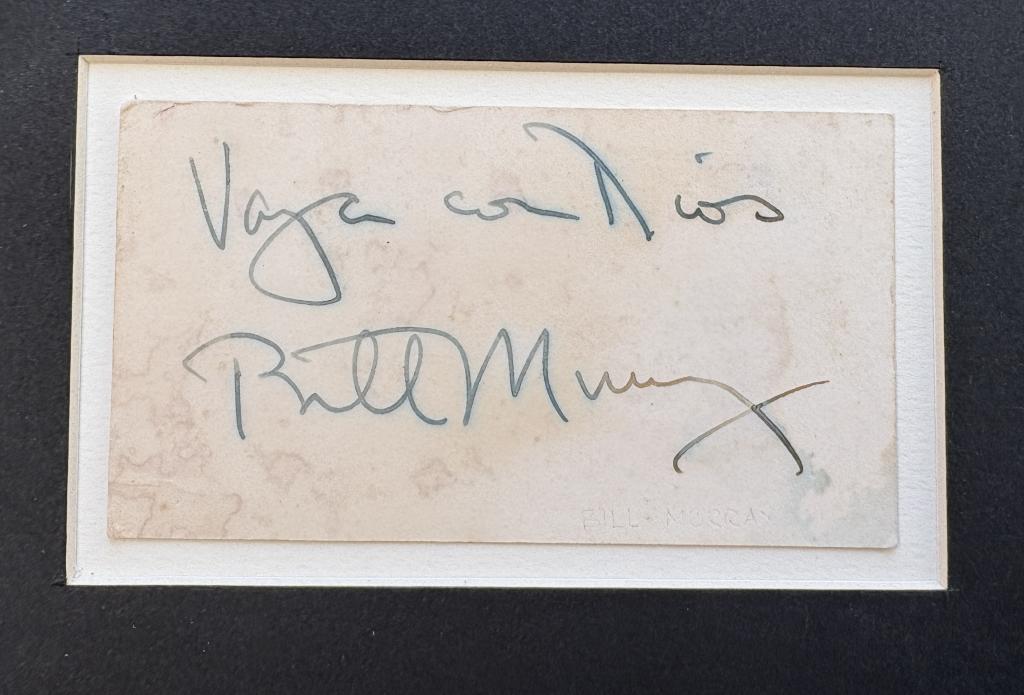 Vaya con Dios
Bill Murray
BILL MURRAY